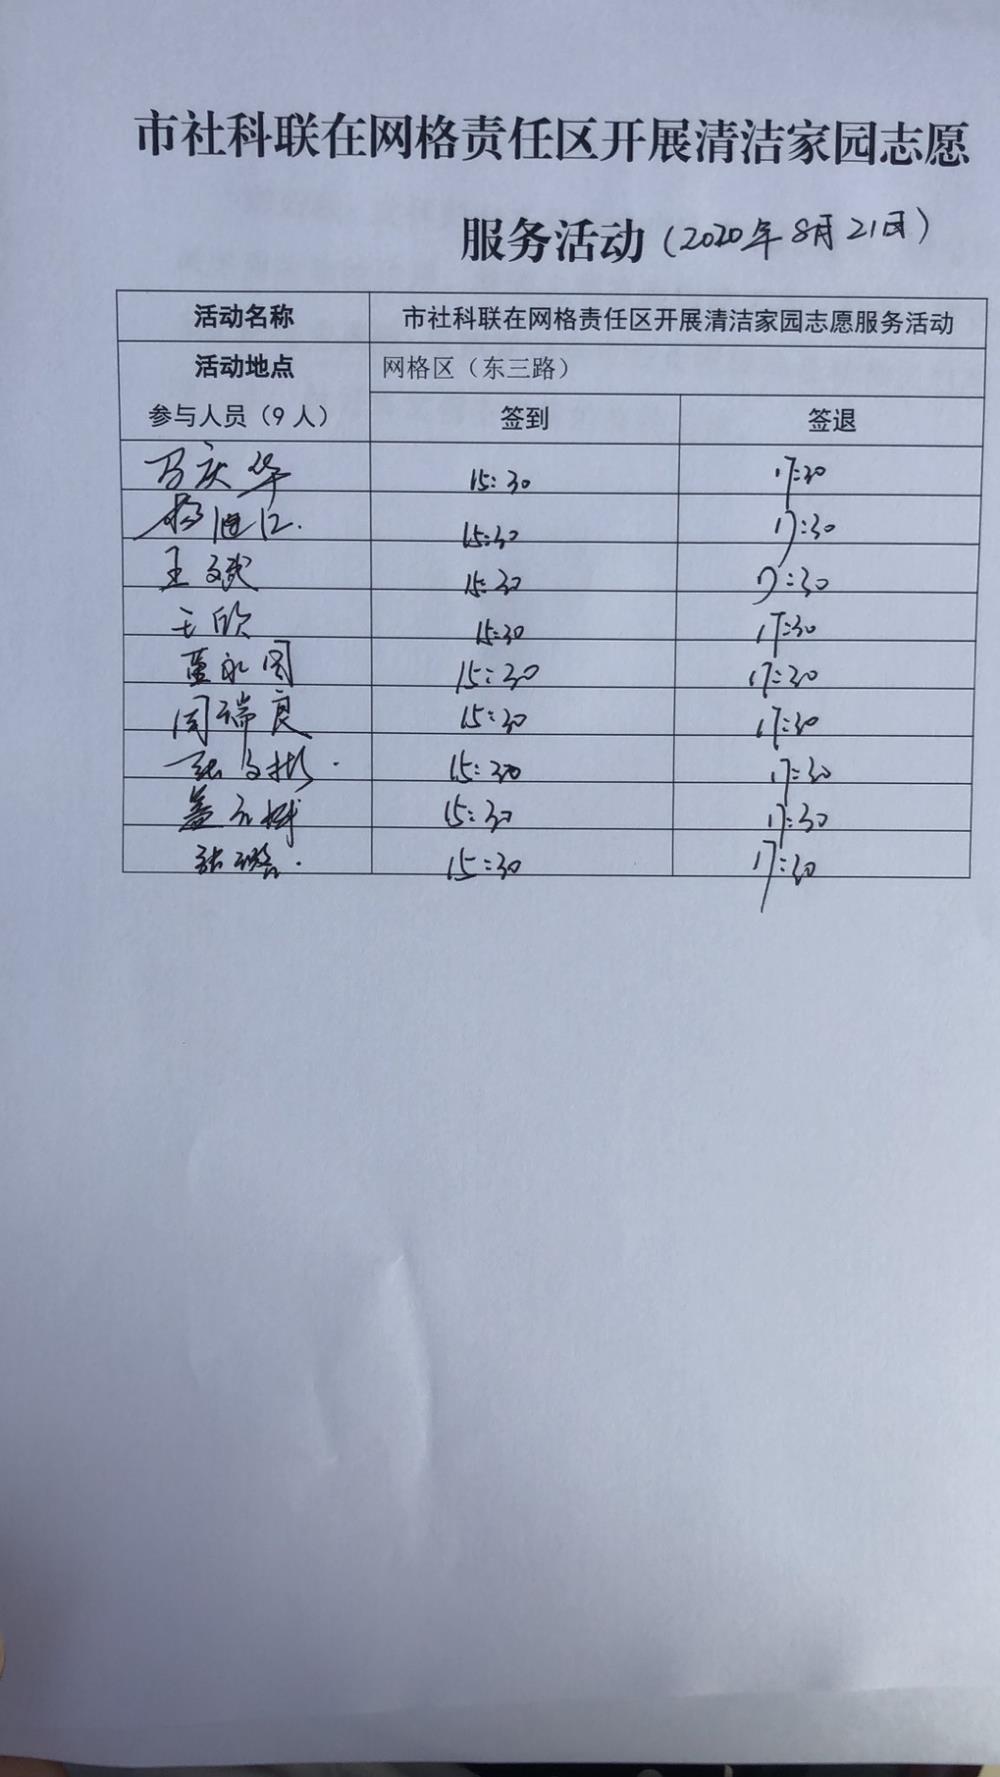 市社科联在网格责任区开展清洁家园志愿
服务活动(2020年8月21日)
活动名称 市社科联在网格责任区开展清洁家园志愿服务活动
活动地点 网格区（东三路）
参与人员（9人） 签到 签退
马庆华 15:30 17:30
杨 15:30 17:30
王斌 15:30 17:30
王欣 15:30 17:30
蓝永国 15:30 17:30
周瑞良 15:30 17:30
张文彬 15:30 17:30
盖元 15:30 17:30
张璐 15:30 17:30